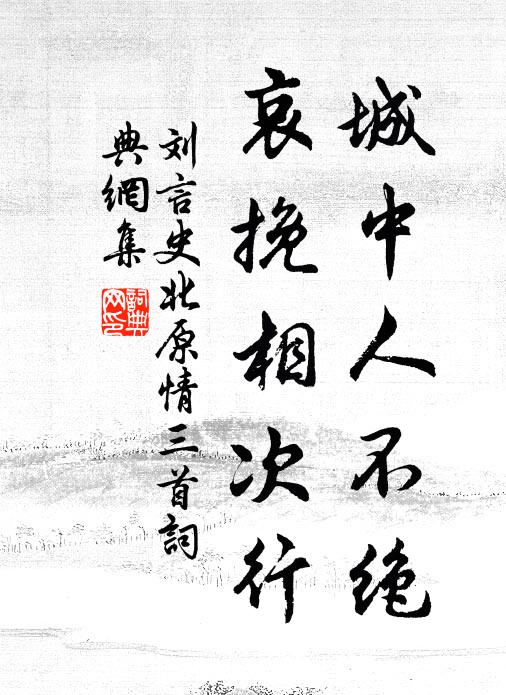 城中人不绝
哀挽相次行
刘言史北原情三首詞
典網集
詞典网印